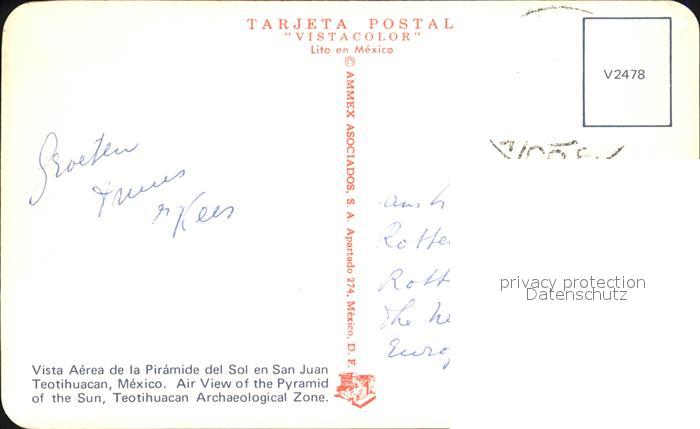 TARJETA POSTAL
"VISTACOLOR"
Lito en México
V2478
© AMMEX ASOCIADOS, S. A. Apartado 274, México, D. F.
Groeten
Kees
Rotte
Rott
The Ne
Europ
privacy protection
Datenschutz
Vista Aérea de la Pirámide del Sol en San Juan
Teotihuacan, México. Air View of the Pyramid
of the Sun, Teotihuacan Archaeological Zone.